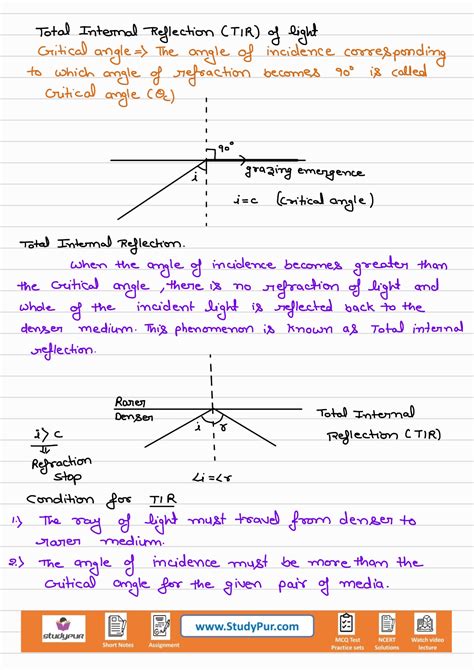 Total Internal Reflection (TIR) of light
Critical angle => The angle of incidence corresponding
to which angle of refraction becomes 90° is called
Critical angle (θc)
90°
i
grazing emergence
i=c (Critical angle)
Total Internal Reflection.
When the angle of incidence becomes greater than
the Critical angle, there is no refraction of light and
whole of the incident light is reflected back to the
denser medium. This phenomenon is known as Total internal
reflection.
Rarer
Denser
i r
Total Internal
Reflection (TIR)
i>c
Refraction
stop
∠i=∠r
Condition for TIR
1.) The ray of light must travel from denser to
rarer medium.
2.) The angle of incidence must be more than the
Critical angle for the given pair of media.
studypur
Short Notes
Assignment
www.StudyPur.com
MCQ Test
Practice sets
NCERT
Solutions
Watch video
lecture